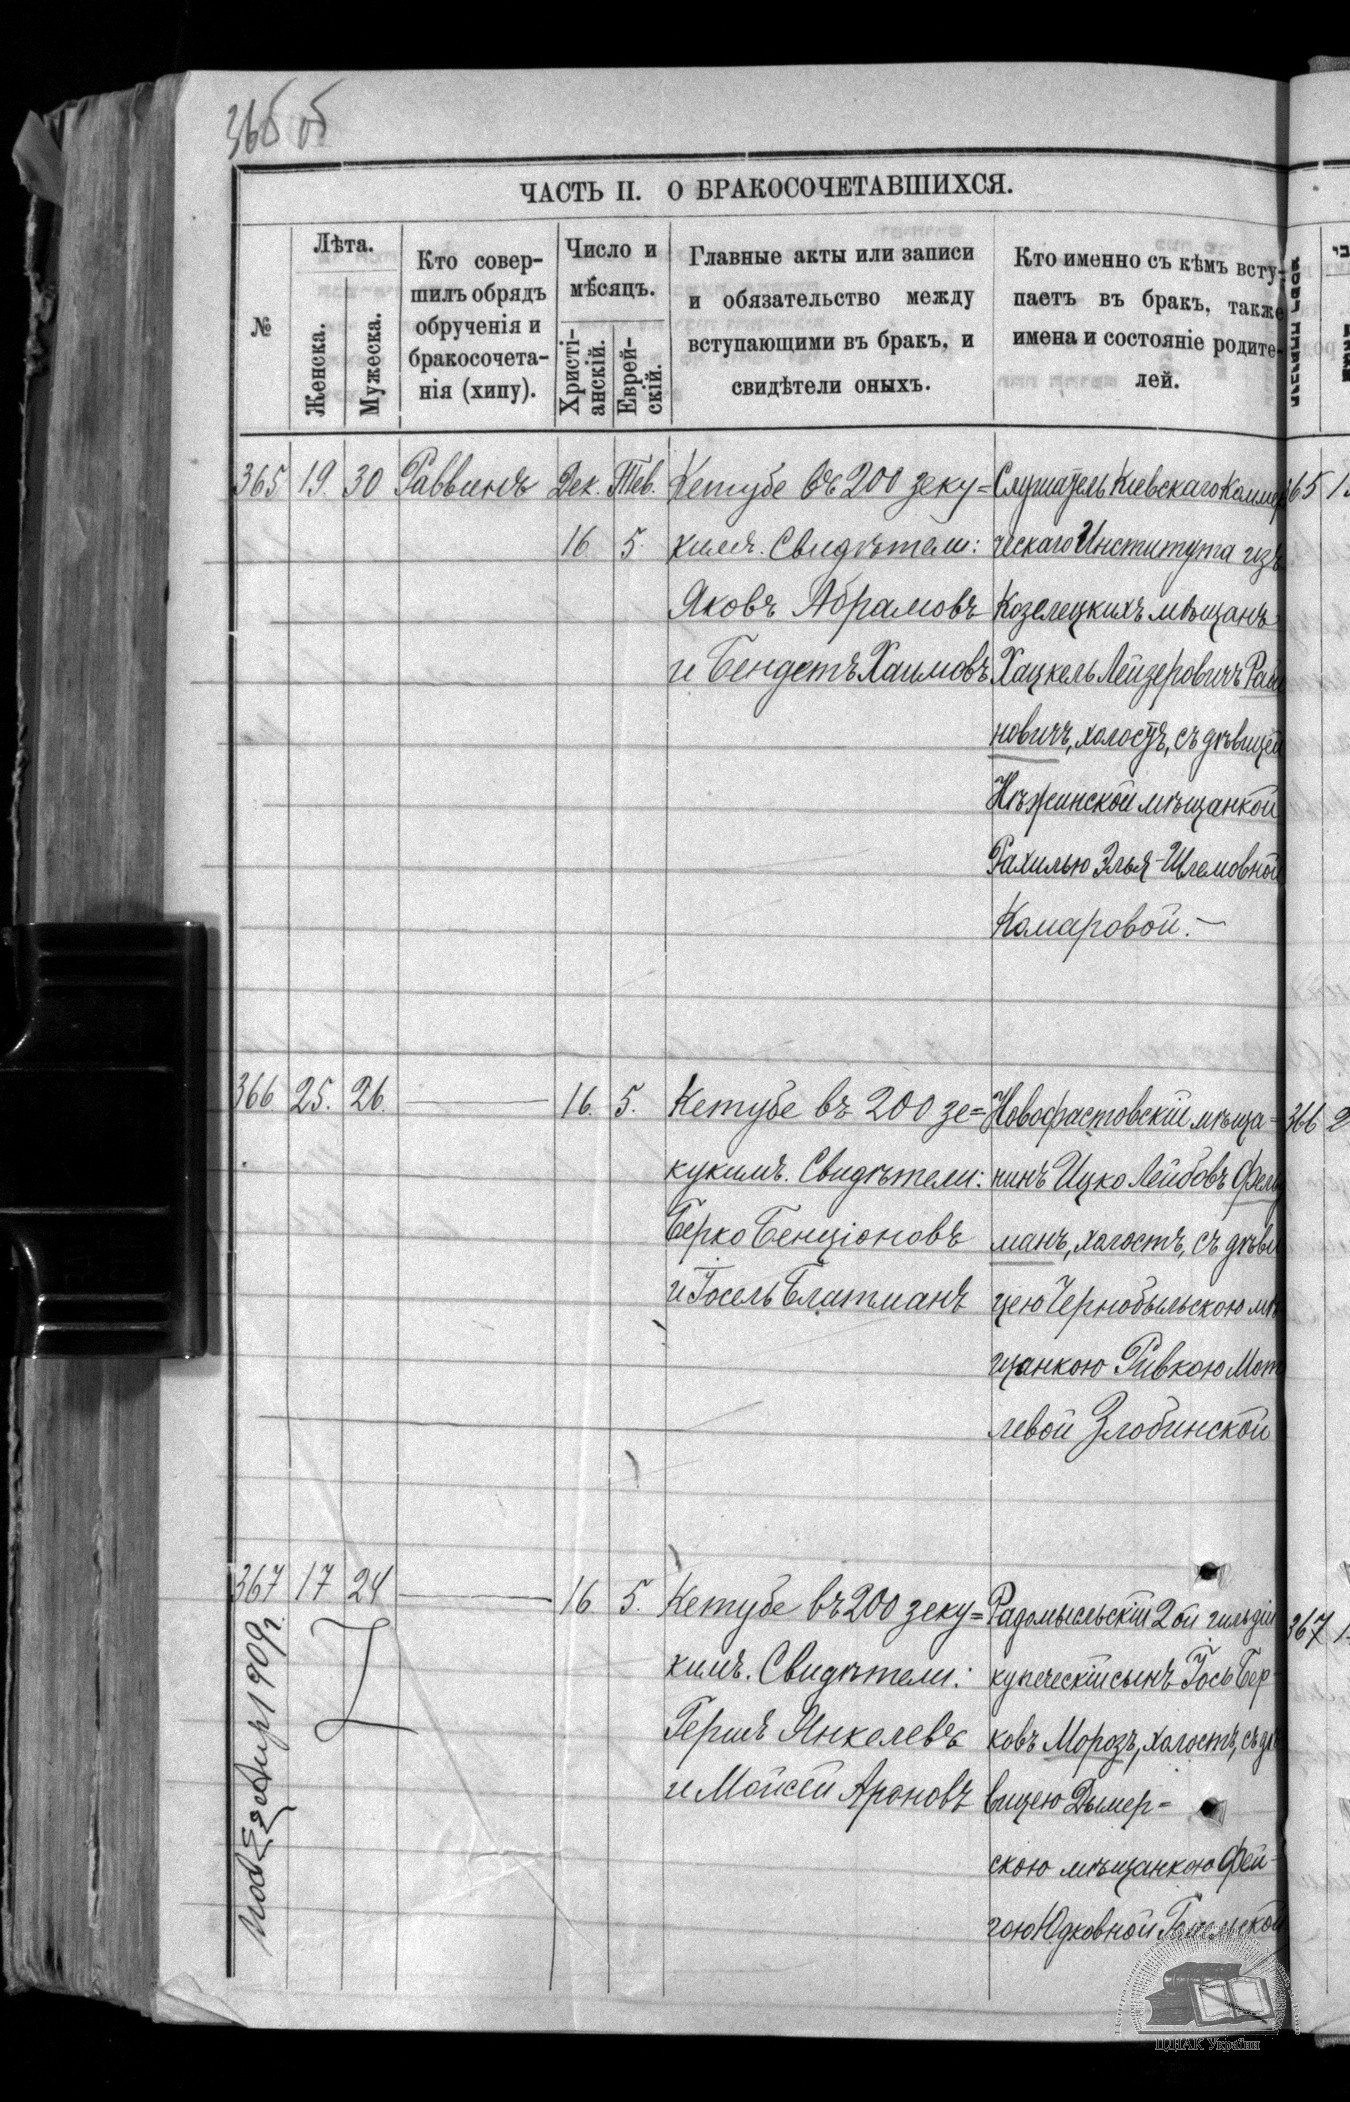 366 об
ЧАСТЬ II. О БРАКОСОЧЕТАВШИХСЯ.
№
Лѣта.
Женска.
Мужеска.
Кто совер-
шилъ обрядъ
обрученія и
бракосочета-
нія (хипу).
Число и
мѣсяцъ.
Христі-
анскій.
Еврей-
скій.
Главные акты или записи
и обязательство между
вступающими въ бракъ, и
свидѣтели оныхъ.
Кто именно съ кѣмъ всту-
паетъ въ бракъ, также
имена и состояніе родите-
лей.
365 19. 30 Раввинъ Дек. Тев.
16 5.
Кетубе въ 200 зеку=
кимъ. Свидѣтели:
Яковъ Абрамовъ
и Бендетъ Хаимовъ
Слушатель Кіевскаго Коммер
ческаго Института изъ
Козелецкихъ мѣщанъ
Хацкель Лейзеровичъ Раби
новичъ, холостъ, съ дѣвицей
Нѣжинской мѣщанкой
Рахилью Элья-Шлемовной
Комаровой.—
366 25. 26. — 16. 5.
Кетубе въ 200 зе=
кукимъ. Свидѣтели:
Берко Бенціоновъ
и Іосель Блатманъ
Новофастовскій мѣща-
нинъ Ицко Лейбовъ Фельд
манъ, холостъ, съ дѣви
цею Чернобыльскою мѣ
щанкою Ривкою Мот
левой Злобинской
367 17 24 — 16. 5.
Кетубе въ 200 зеку=
кимъ. Свидѣтели:
Гершъ Янкелевъ
и Мойсей Ароновъ
Радомысльскій 2ой гильдіи
купеческій сынъ Іось Бер-
ковъ Морозъ, холостъ, съ дѣ
вицею Дымер=
скою мѣщанкою Фей-
гою Юдковной Гомельской
1909г.
365 1
366 2
367 1
ЦДІАК України